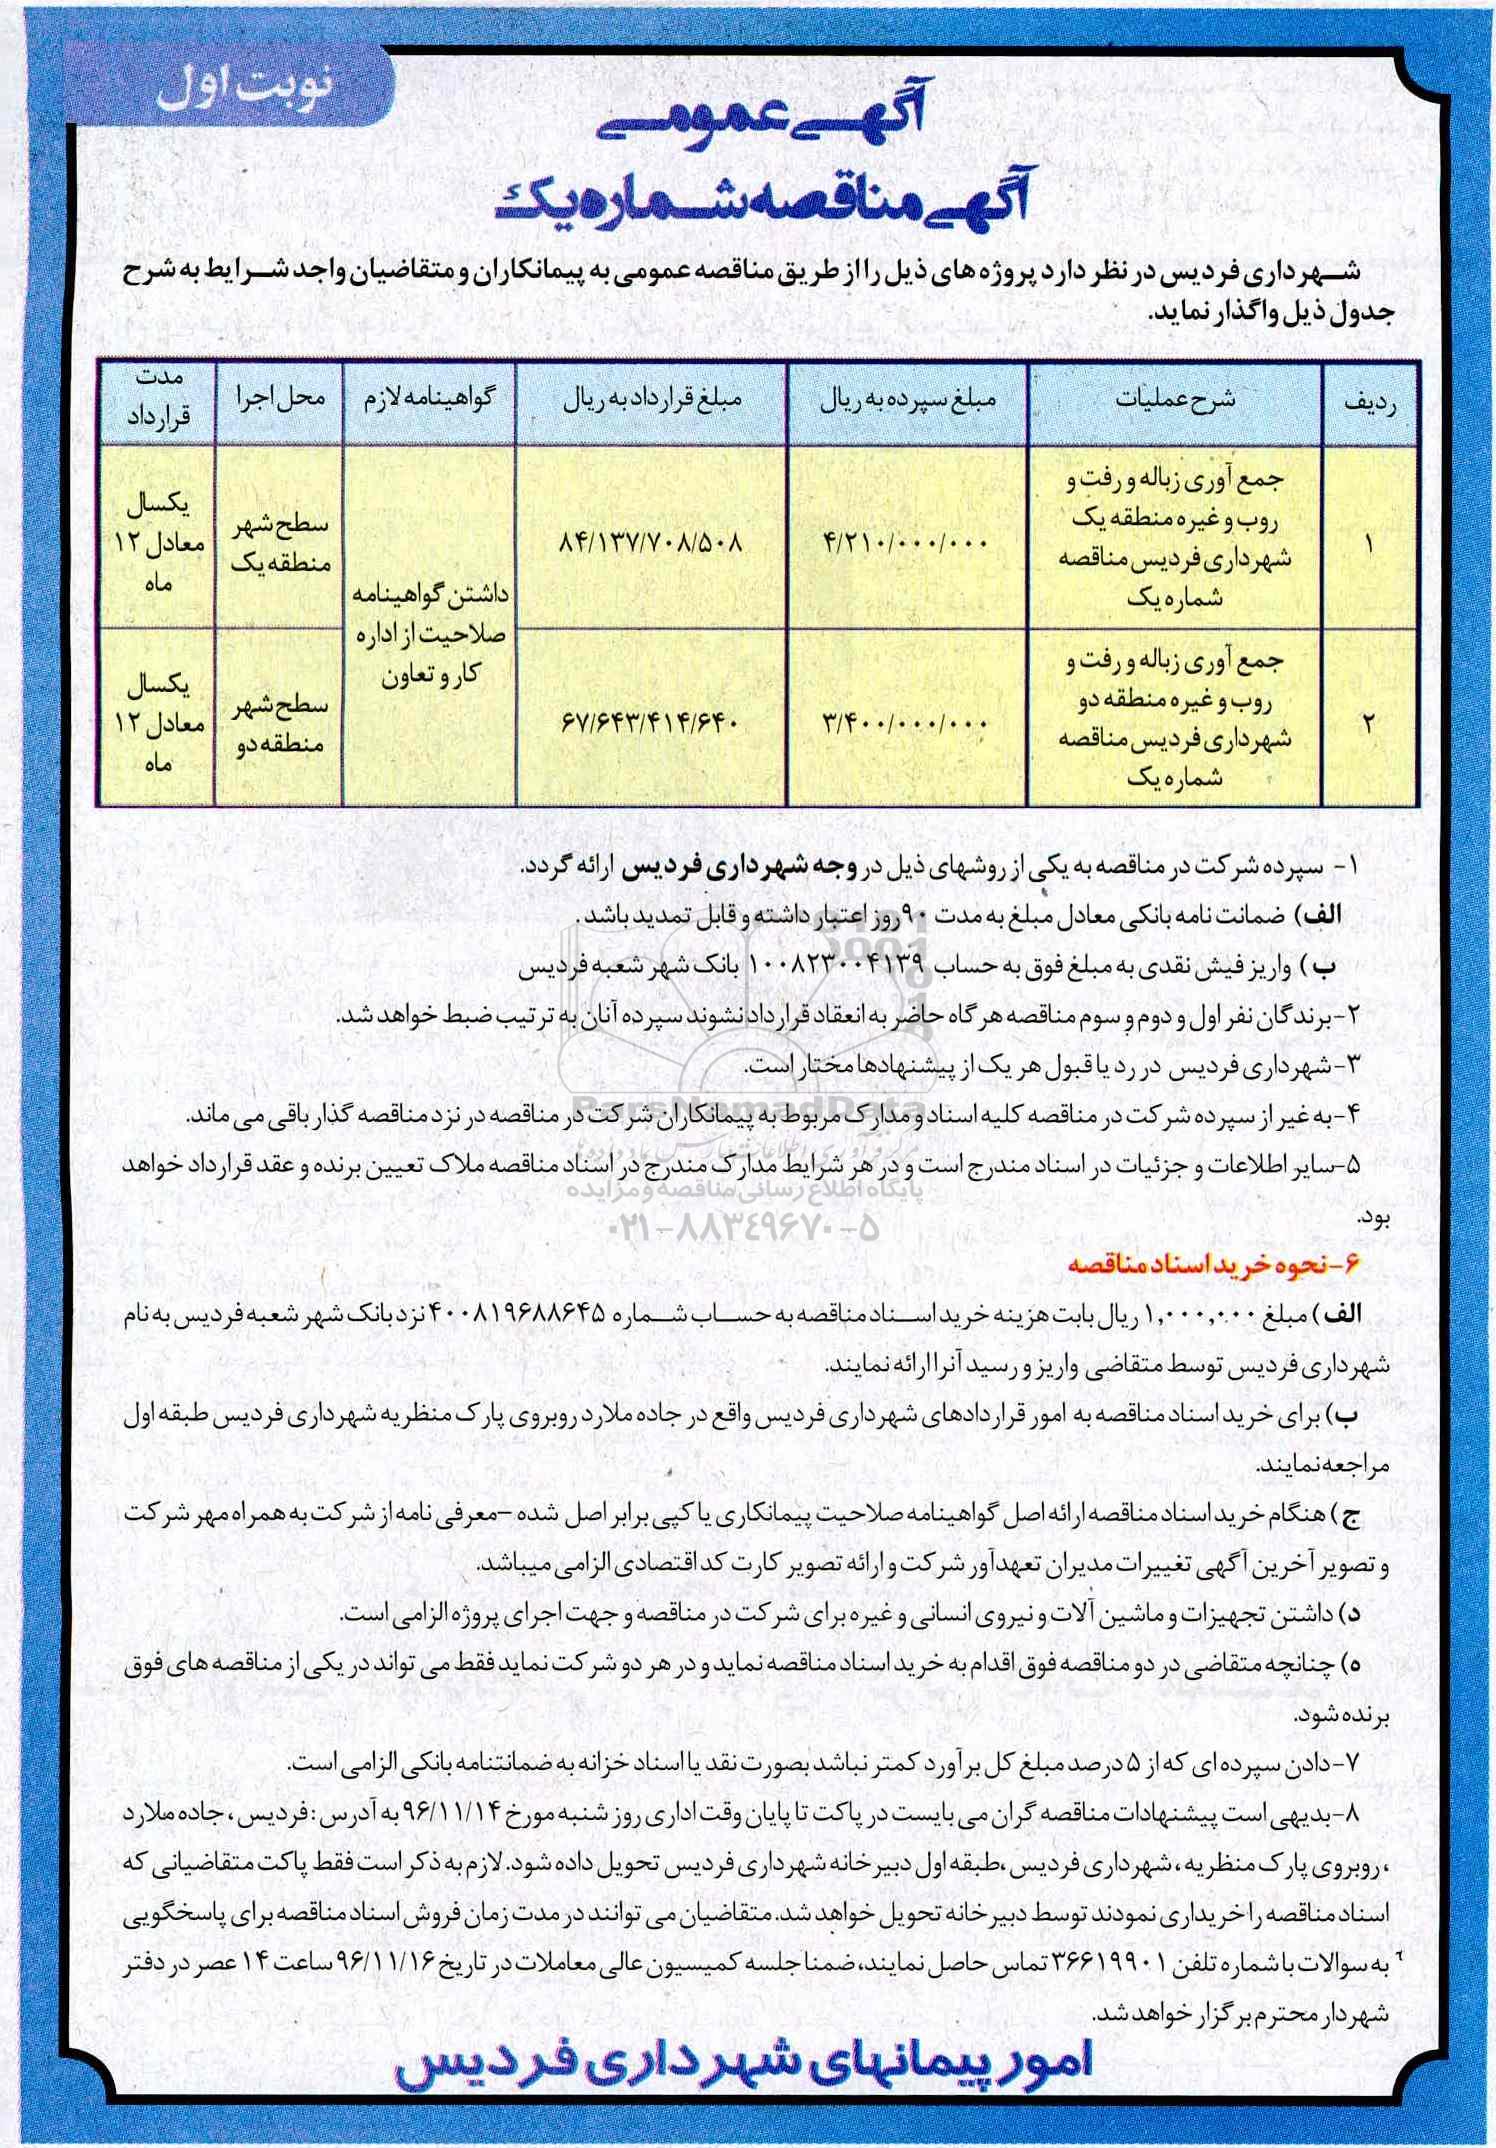 نوبت اول
آگهی عمومی
آگهی مناقصه شماره یک
شهرداری فردیس در نظر دارد پروژه های ذیل را از طریق مناقصه عمومی به پیمانکاران و متقاضیان واجد شرایط به شرح
جدول ذیل واگذار نماید.
ردیف | شرح عملیات | مبلغ سپرده به ریال | مبلغ قرارداد به ریال | گواهینامه لازم | محل اجرا | مدت قرارداد
۱ | جمع آوری زباله و رفت و روب و غیره منطقه یک شهرداری فردیس مناقصه شماره یک | ۴/۲۱۰/۰۰۰/۰۰۰ | ۸۴/۱۳۷/۷۰۸/۵۰۸ | داشتن گواهینامه صلاحیت از اداره کار و تعاون | سطح شهر منطقه یک | یکسال معادل ۱۲ ماه
۲ | جمع آوری زباله و رفت و روب و غیره منطقه دو شهرداری فردیس مناقصه شماره یک | ۳/۴۰۰/۰۰۰/۰۰۰ | ۶۷/۶۴۳/۴۱۴/۶۴۰ | سطح شهر منطقه دو | یکسال معادل ۱۲ ماه
۱- سپرده شرکت در مناقصه به یکی از روشهای ذیل در وجه شهرداری فردیس ارائه گردد.
الف) ضمانت نامه بانکی معادل مبلغ به مدت ۹۰ روز اعتبار داشته و قابل تمدید باشد.
ب) واریز فیش نقدی به مبلغ فوق به حساب ۱۰۰۸۲۳۰۰۴۱۳۹ بانک شهر شعبه فردیس
۲-برندگان نفر اول و دوم و سوم مناقصه هر گاه حاضر به انعقاد قرارداد نشوند سپرده آنان به ترتیب ضبط خواهد شد.
۳-شهرداری فردیس در رد یا قبول هر یک از پیشنهادها مختار است.
۴-به غیر از سپرده شرکت در مناقصه کلیه اسناد و مدارک مربوط به پیمانکاران شرکت در مناقصه در نزد مناقصه گذار باقی می ماند.
۵-سایر اطلاعات و جزئیات در اسناد مندرج است و در هر شرایط مدارک مندرج در اسناد مناقصه ملاک تعیین برنده و عقد قرارداد خواهد
بود.
ParsNamadData
پایگاه اطلاع رسانی مناقصه و مزایده
۰۲۱-۸۸۳۴۹۶۷۰-۵
۶-نحوه خرید اسناد مناقصه
الف) مبلغ ۱,۰۰۰,۰۰۰ ریال بابت هزینه خرید اسناد مناقصه به حساب شماره ۴۰۰۸۱۹۶۸۸۶۴۵ نزد بانک شهر شعبه فردیس به نام
شهرداری فردیس توسط متقاضی واریز و رسید آنرا ارائه نمایند.
ب) برای خرید اسناد مناقصه به امور قراردادهای شهرداری فردیس واقع در جاده ملارد روبروی پارک منظریه شهرداری فردیس طبقه اول
مراجعه نمایند.
ج) هنگام خرید اسناد مناقصه ارائه اصل گواهینامه صلاحیت پیمانکاری یا کپی برابر اصل شده -معرفی نامه از شرکت به همراه مهر شرکت
و تصویر آخرین آگهی تغییرات مدیران تعهدآور شرکت و ارائه تصویر کارت کد اقتصادی الزامی میباشد.
د) داشتن تجهیزات و ماشین آلات و نیروی انسانی و غیره برای شرکت در مناقصه و جهت اجرای پروژه الزامی است.
ه) چنانچه متقاضی در دو مناقصه فوق اقدام به خرید اسناد مناقصه نماید و در هر دو شرکت نماید فقط می تواند در یکی از مناقصه های فوق
برنده شود.
۷-دادن سپرده ای که از ۵ درصد مبلغ کل برآورد کمتر نباشد بصورت نقد یا اسناد خزانه به ضمانتنامه بانکی الزامی است.
۸-بدیهی است پیشنهادات مناقصه گران می بایست در پاکت تا پایان وقت اداری روز شنبه مورخ ۹۶/۱۱/۱۴ به آدرس : فردیس ، جاده ملارد
، روبروی پارک منظریه ، شهرداری فردیس ،طبقه اول دبیرخانه شهرداری فردیس تحویل داده شود. لازم به ذکر است فقط پاکت متقاضیانی که
اسناد مناقصه را خریداری نمودند توسط دبیرخانه تحویل خواهد شد. متقاضیان می توانند در مدت زمان فروش اسناد مناقصه برای پاسخگویی
به سوالات با شماره تلفن ۳۶۶۱۹۹۰۱ تماس حاصل نمایند، ضمنا جلسه کمیسیون عالی معاملات در تاریخ ۹۶/۱۱/۱۶ ساعت ۱۴ عصر در دفتر
شهردار محترم برگزار خواهد شد.
امور پیمانهای شهرداری فردیس